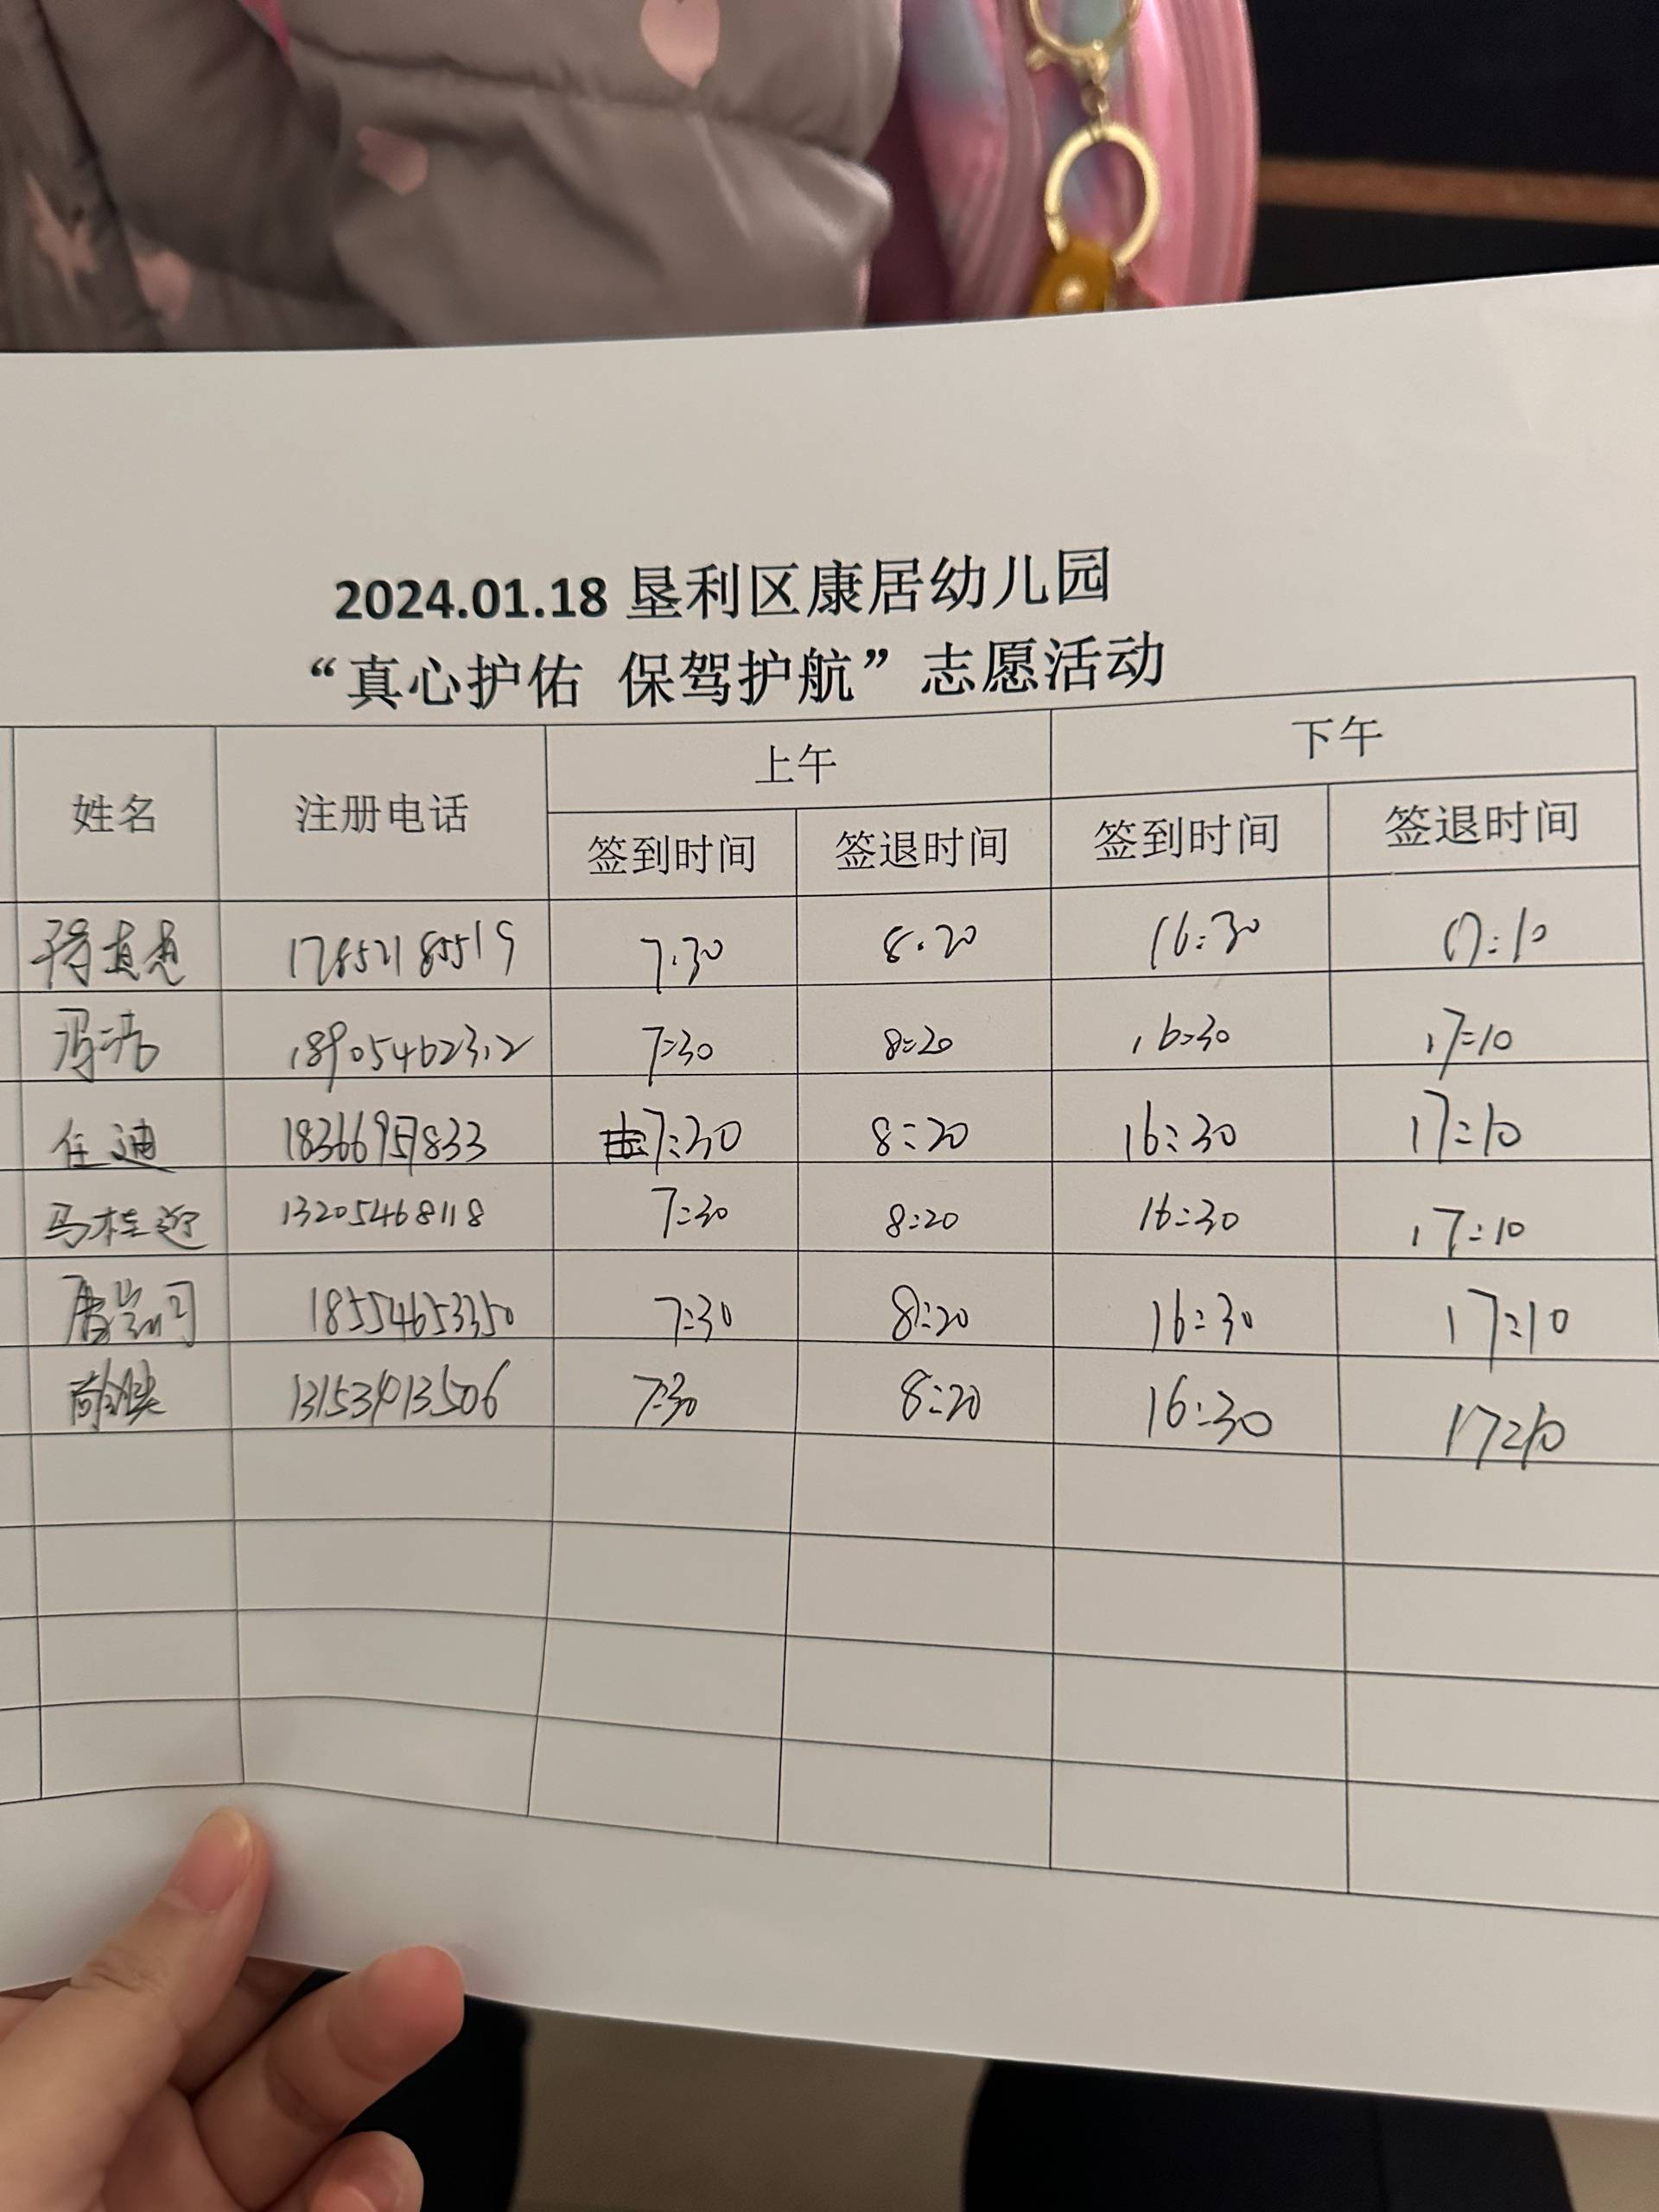 2024.01.18 垦利区康居幼儿园
“真心护佑 保驾护航”志愿活动
姓名 注册电话 上午 下午
签到时间 签退时间 签到时间 签退时间
17852185519 7.30 8.20 16:30 17:10
18905462312 7:30 8:20 16:30 17:10
任迪 7:30 8:20 16:30 17:10
马桂迎 13205468118 7:30 8:20 16:30 17:10
唐 18554653350 7:30 8:20 16:30 17:10
7:30 8:20 16:30 17:10